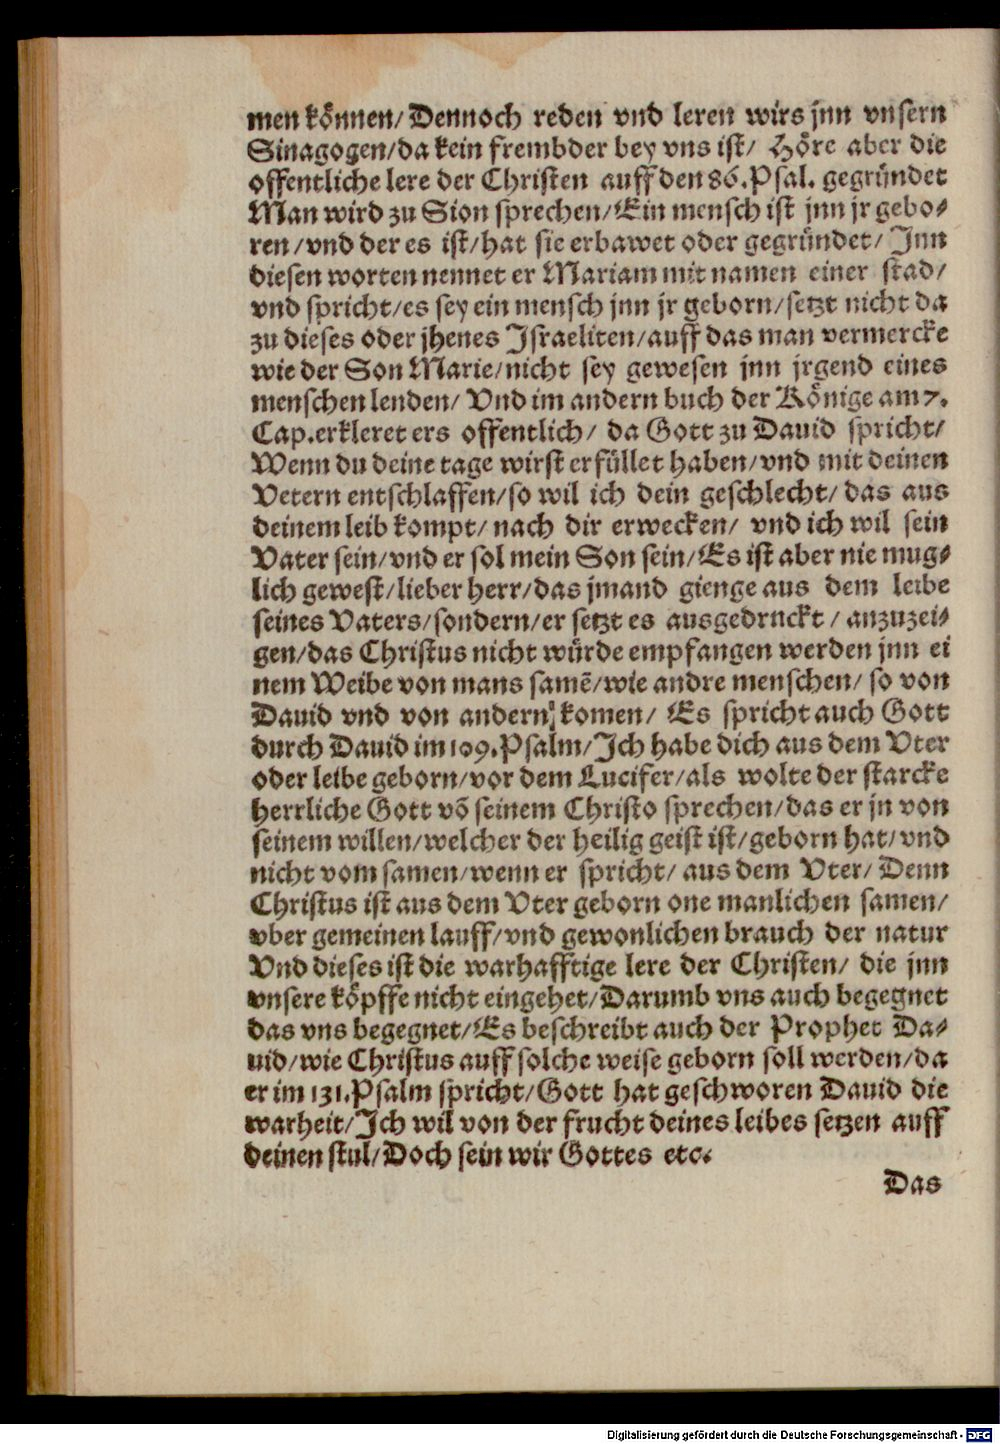 men können/ Dennoch reden vnd leren wirs jnn vnsern
Sinagogen/da kein frembder bey vns ist/ Höre aber die
offentliche lere der Christen auff den 86.Psal. gegründet
Man wird zu Sion sprechen/Ein mensch ist jnn jr gebo-
ren/vnd der es ist/hat sie erbawet oder gegründet/ Jnn
diesen worten nennet er Mariam mit namen einer stad/
vnd spricht/es sey ein mensch jnn jr geborn/setzt nicht da
zu dieses oder jhenes Jsraeliten/auff das man vermercke
wie der Son Marie/nicht sey gewesen jnn jrgend eines
menschen lenden/ Vnd im andern buch der Könige am 7.
Cap.erkleret ers offentlich/ da Gott zu Dauid spricht/
Wenn du deine tage wirst erfüllet haben/vnd mit deinen
Vetern entschlaffen/so wil ich dein geschlecht/das aus
deinem leib kompt/nach dir erwecken/ vnd ich wil sein
Vater sein/vnd er sol mein Son sein/Es ist aber nie mug-
lich gewest/lieber herr/das jmand gienge aus dem leibe
seines Vaters/sondern/er setzt es ausgedruckt/anzuzei-
gen/das Christus nicht würde empfangen werden jnn ei
nem Weibe von mans samē/wie andre menschen/ so von
Dauid vnd von andern komen/ Es spricht auch Gott
durch Dauid im 109.Psalm/Jch habe dich aus dem Vter
oder leibe geborn/vor dem Lucifer/als wolte der starcke
herrliche Gott vō seinem Christo sprechen/das er jn von
seinem willen/welcher der heilig geist ist/geborn hat/vnd
nicht vom samen/wenn er spricht/ aus dem Vter/ Denn
Christus ist aus dem Vter geborn one manlichen samen/
vber gemeinen lauff/vnd gewonlichen brauch der natur
Vnd dieses ist die warhafftige lere der Christen/ die jnn
vnsere köpffe nicht eingehet/Darumb vns auch begegnet
das vns begegnet/Es beschreibt auch der Prophet Da-
uid/wie Christus auff solche weise geborn soll werden/da
er im 131.Psalm spricht/Gott hat geschworen Dauid die
warheit/Jch wil von der frucht deines leibes setzen auff
deinen stul/Doch sein wir Gottes etc.
Das
Digitalisierung gefördert durch die Deutsche Forschungsgemeinschaft - DFG